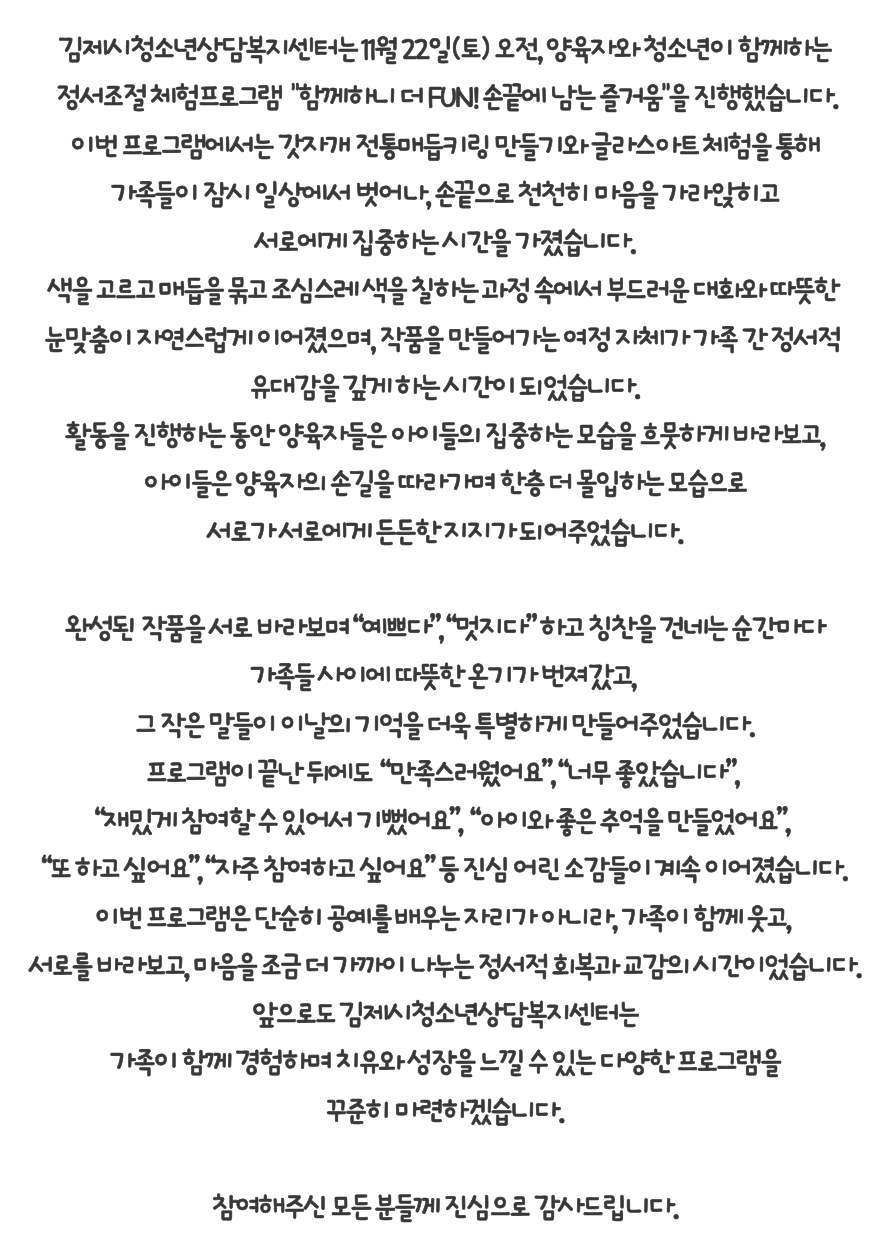 김제시청소년상담복지센터는 11월 22일(토) 오전, 양육자와 청소년이 함께하는
정서조절 체험프로그램 "함께하니 더 FUN! 손끝에 남는 즐거움"을 진행했습니다.
이번 프로그램에서는 갓자개 전통매듭키링 만들기와 글라스아트 체험을 통해
가족들이 잠시 일상에서 벗어나, 손끝으로 천천히 마음을 가라앉히고
서로에게 집중하는 시간을 가졌습니다.
색을 고르고 매듭을 묶고 조심스레 색을 칠하는 과정 속에서 부드러운 대화와 따뜻한
눈맞춤이 자연스럽게 이어졌으며, 작품을 만들어가는 여정 자체가 가족 간 정서적
유대감을 깊게 하는 시간이 되었습니다.
활동을 진행하는 동안 양육자들은 아이들의 집중하는 모습을 흐뭇하게 바라보고,
아이들은 양육자의 손길을 따라가며 한층 더 몰입하는 모습으로
서로가 서로에게 든든한 지지가 되어주었습니다.
완성된 작품을 서로 바라보며 “예쁘다”, “멋지다” 하고 칭찬을 건네는 순간마다
가족들 사이에 따뜻한 온기가 번져갔고,
그 작은 말들이 이날의 기억을 더욱 특별하게 만들어주었습니다.
프로그램이 끝난 뒤에도 “만족스러웠어요”, “너무 좋았습니다”,
“재밌게 참여할 수 있어서 기뻤어요”, “아이와 좋은 추억을 만들었어요”,
“또 하고 싶어요”, “자주 참여하고 싶어요” 등 진심 어린 소감들이 계속 이어졌습니다.
이번 프로그램은 단순히 공예를 배우는 자리가 아니라, 가족이 함께 웃고,
서로를 바라보고, 마음을 조금 더 가까이 나누는 정서적 회복과 교감의 시간이었습니다.
앞으로도 김제시청소년상담복지센터는
가족이 함께 경험하며 치유와 성장을 느낄 수 있는 다양한 프로그램을
꾸준히 마련하겠습니다.
참여해주신 모든 분들께 진심으로 감사드립니다.